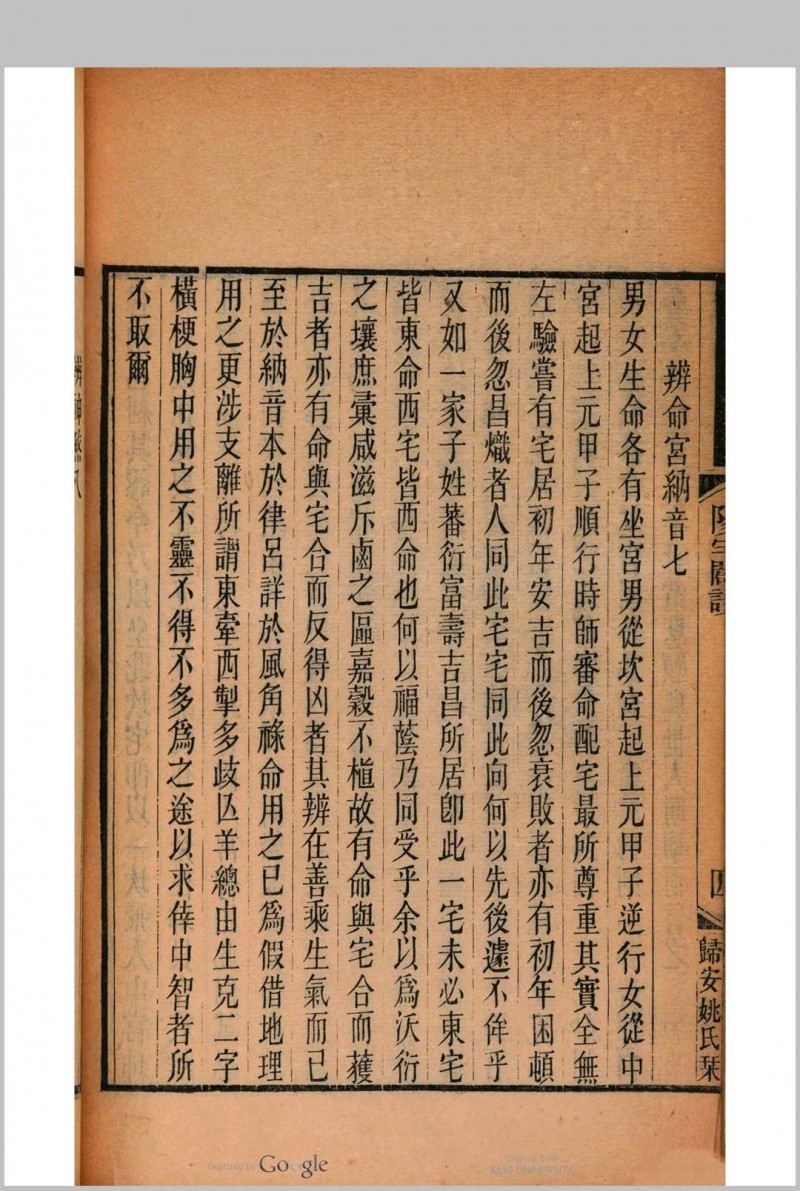 陽宅闢謬
四
歸安姚氏栞
辨命宮納音七
男女生命各有坐宮男從坎宮起上元甲子逆行女從中
宮起上元甲子順行時師審命配宅最所尊重其實全無
左驗嘗有宅居初年安吉而後忽衰敗者亦有初年困頓
而後忽昌熾者人同此宅宅同此向何以先後遽不侔乎
又如一家子姓蕃衍富壽吉昌所居卽此一宅未必東宅
皆東命西宅皆西命也何以福蔭乃同受乎余以爲沃衍
之壤庶彚咸滋斥鹵之區嘉穀不植故有命與宅合而獲
吉者亦有命與宅合而反得凶者其辨在善乘生氣而已
至於納音本於律呂詳於風角祿命用之已爲假借地理
用之更涉支離所謂東牽西掣多歧亾羊總由生克二字
橫梗胸中用之不靈不得不多爲之途以求倖中智者所
不取爾
辨神煞八
Digitized by Google
Original from
KEIO UNIVERSITY